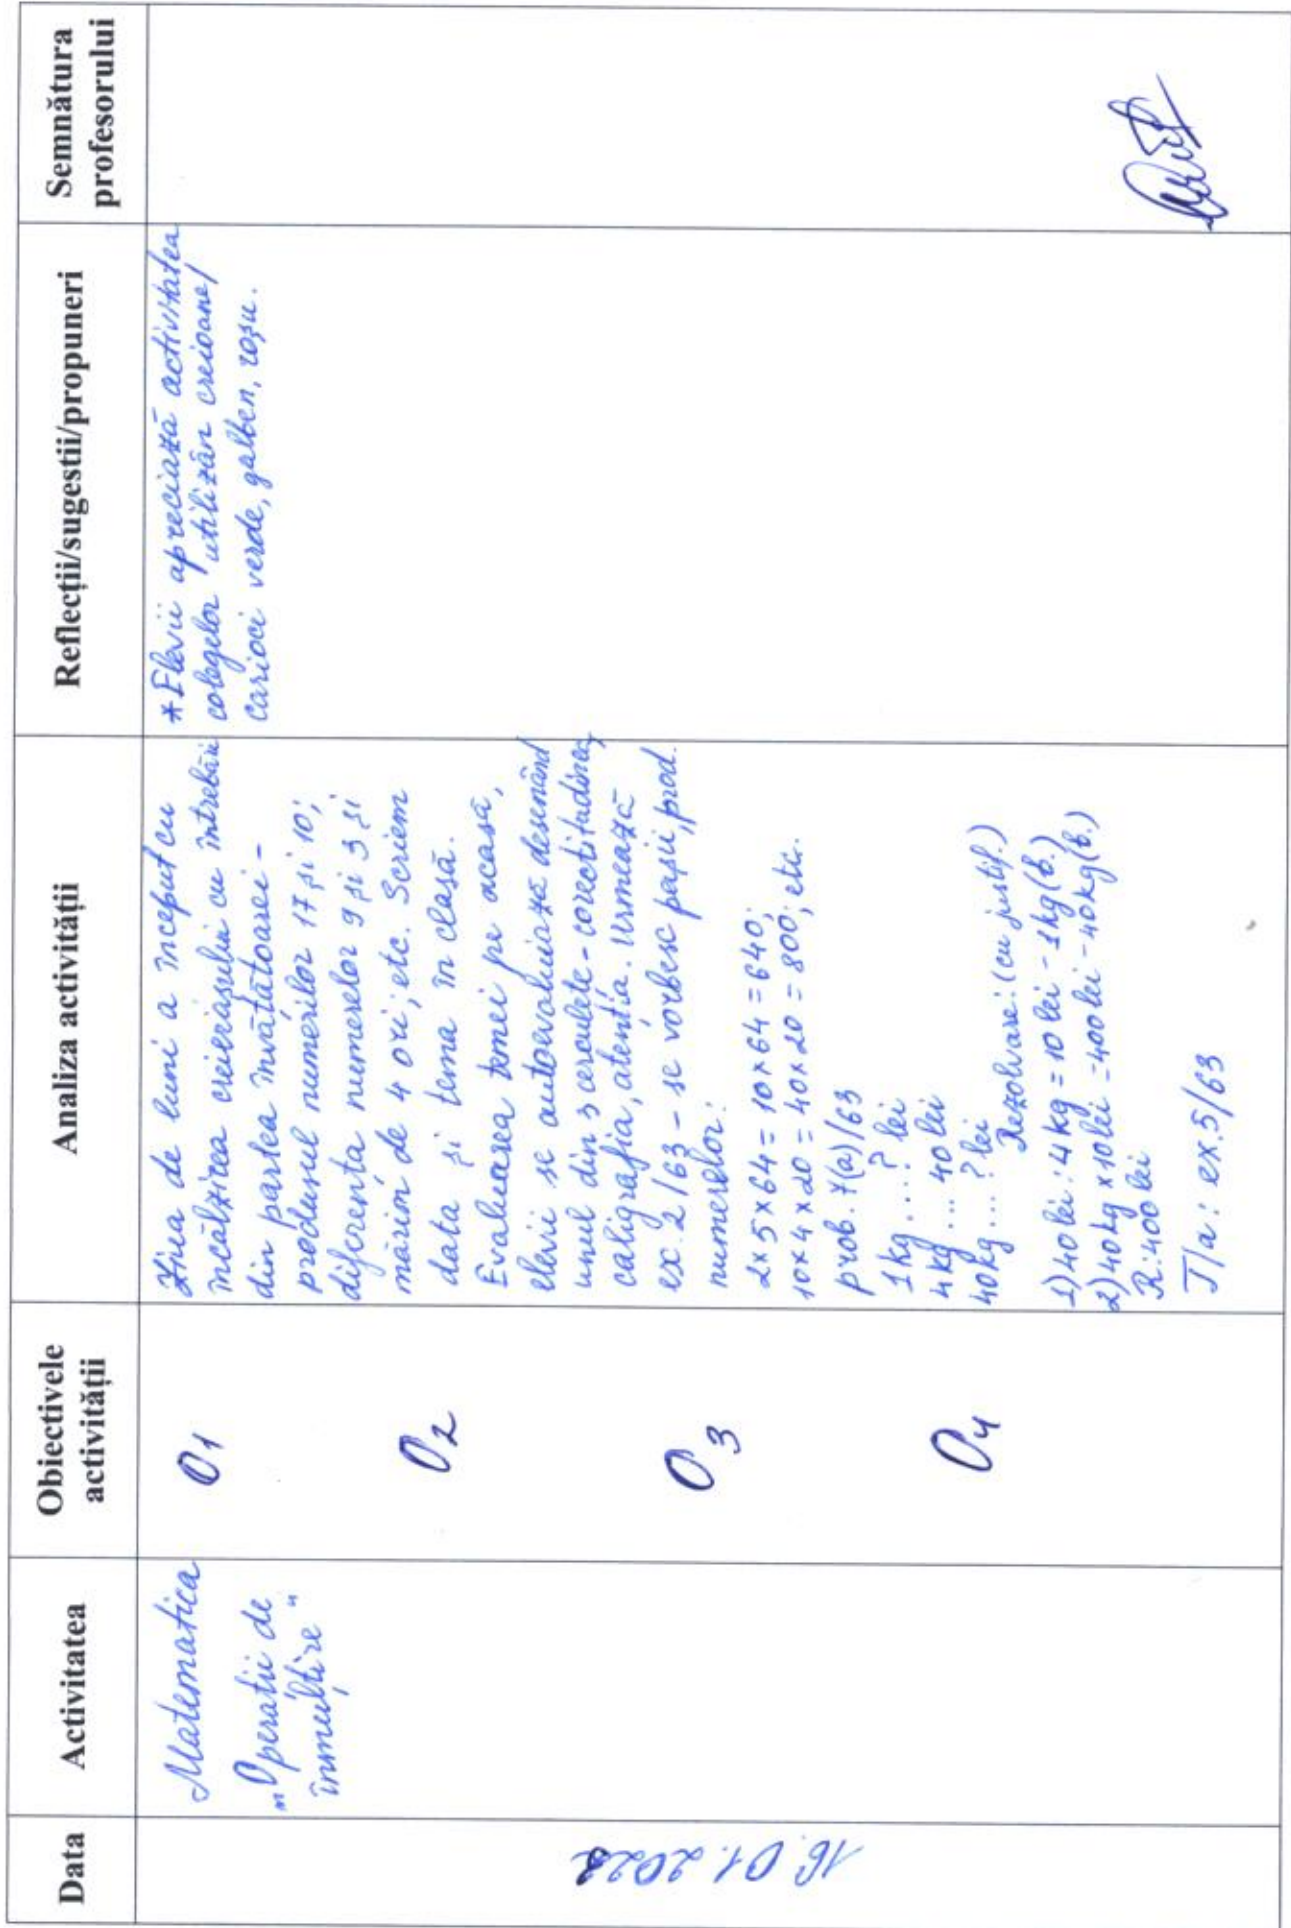 Data
Activitatea
Obiectivele
activității
Analiza activității
Reflecții/sugestii/propuneri
Semnătura
profesorului
16.01.2023
Matematica
„Operații de
înmulțire"
O1
O2
O3
O4
Ziua de luni a început cu
încălzirea creierașului cu întrebări
din partea învățătoarei -
produsul numerilor 17 și 10;
diferența numerelor 9 și 3 și
mărim de 4 ori; etc. Scriem
data și tema în clasă.
Evaluarea temei pe acasă,
elevii se autoevaluiază desenând
unul din 3 cerculete - corectitudinea,
caligrafia, atenția. Urmează
ex. 2/63 - se vorbesc pașii, prod.
numerelor:
2x5x64 = 10x64 = 640;
10x4x20 = 40x20 = 800; etc.
prob. 7(a)/63
1kg ... ? lei
4kg ... 40 lei
40kg ... ? lei
Rezolvare: (cu justif.)
1) 40 lei : 4 kg = 10 lei - 1kg (b.)
2) 40 kg x 10 lei = 400 lei - 40kg (b.)
R: 400 lei
T/a: ex. 5/63
*Elevii apreciază activitatea
colegilor utilizân creioane/
carioci verde, galben, roșu.